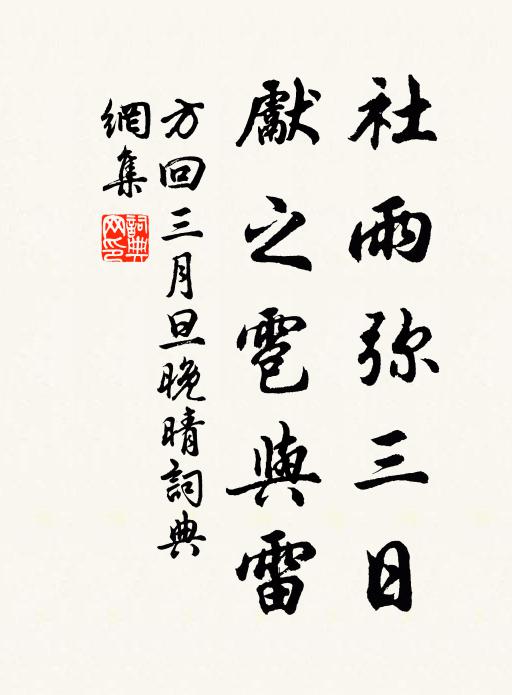 社雨弥三日
獻之雹與雷
方回三月旦晚晴詞典
網集
詞典网印